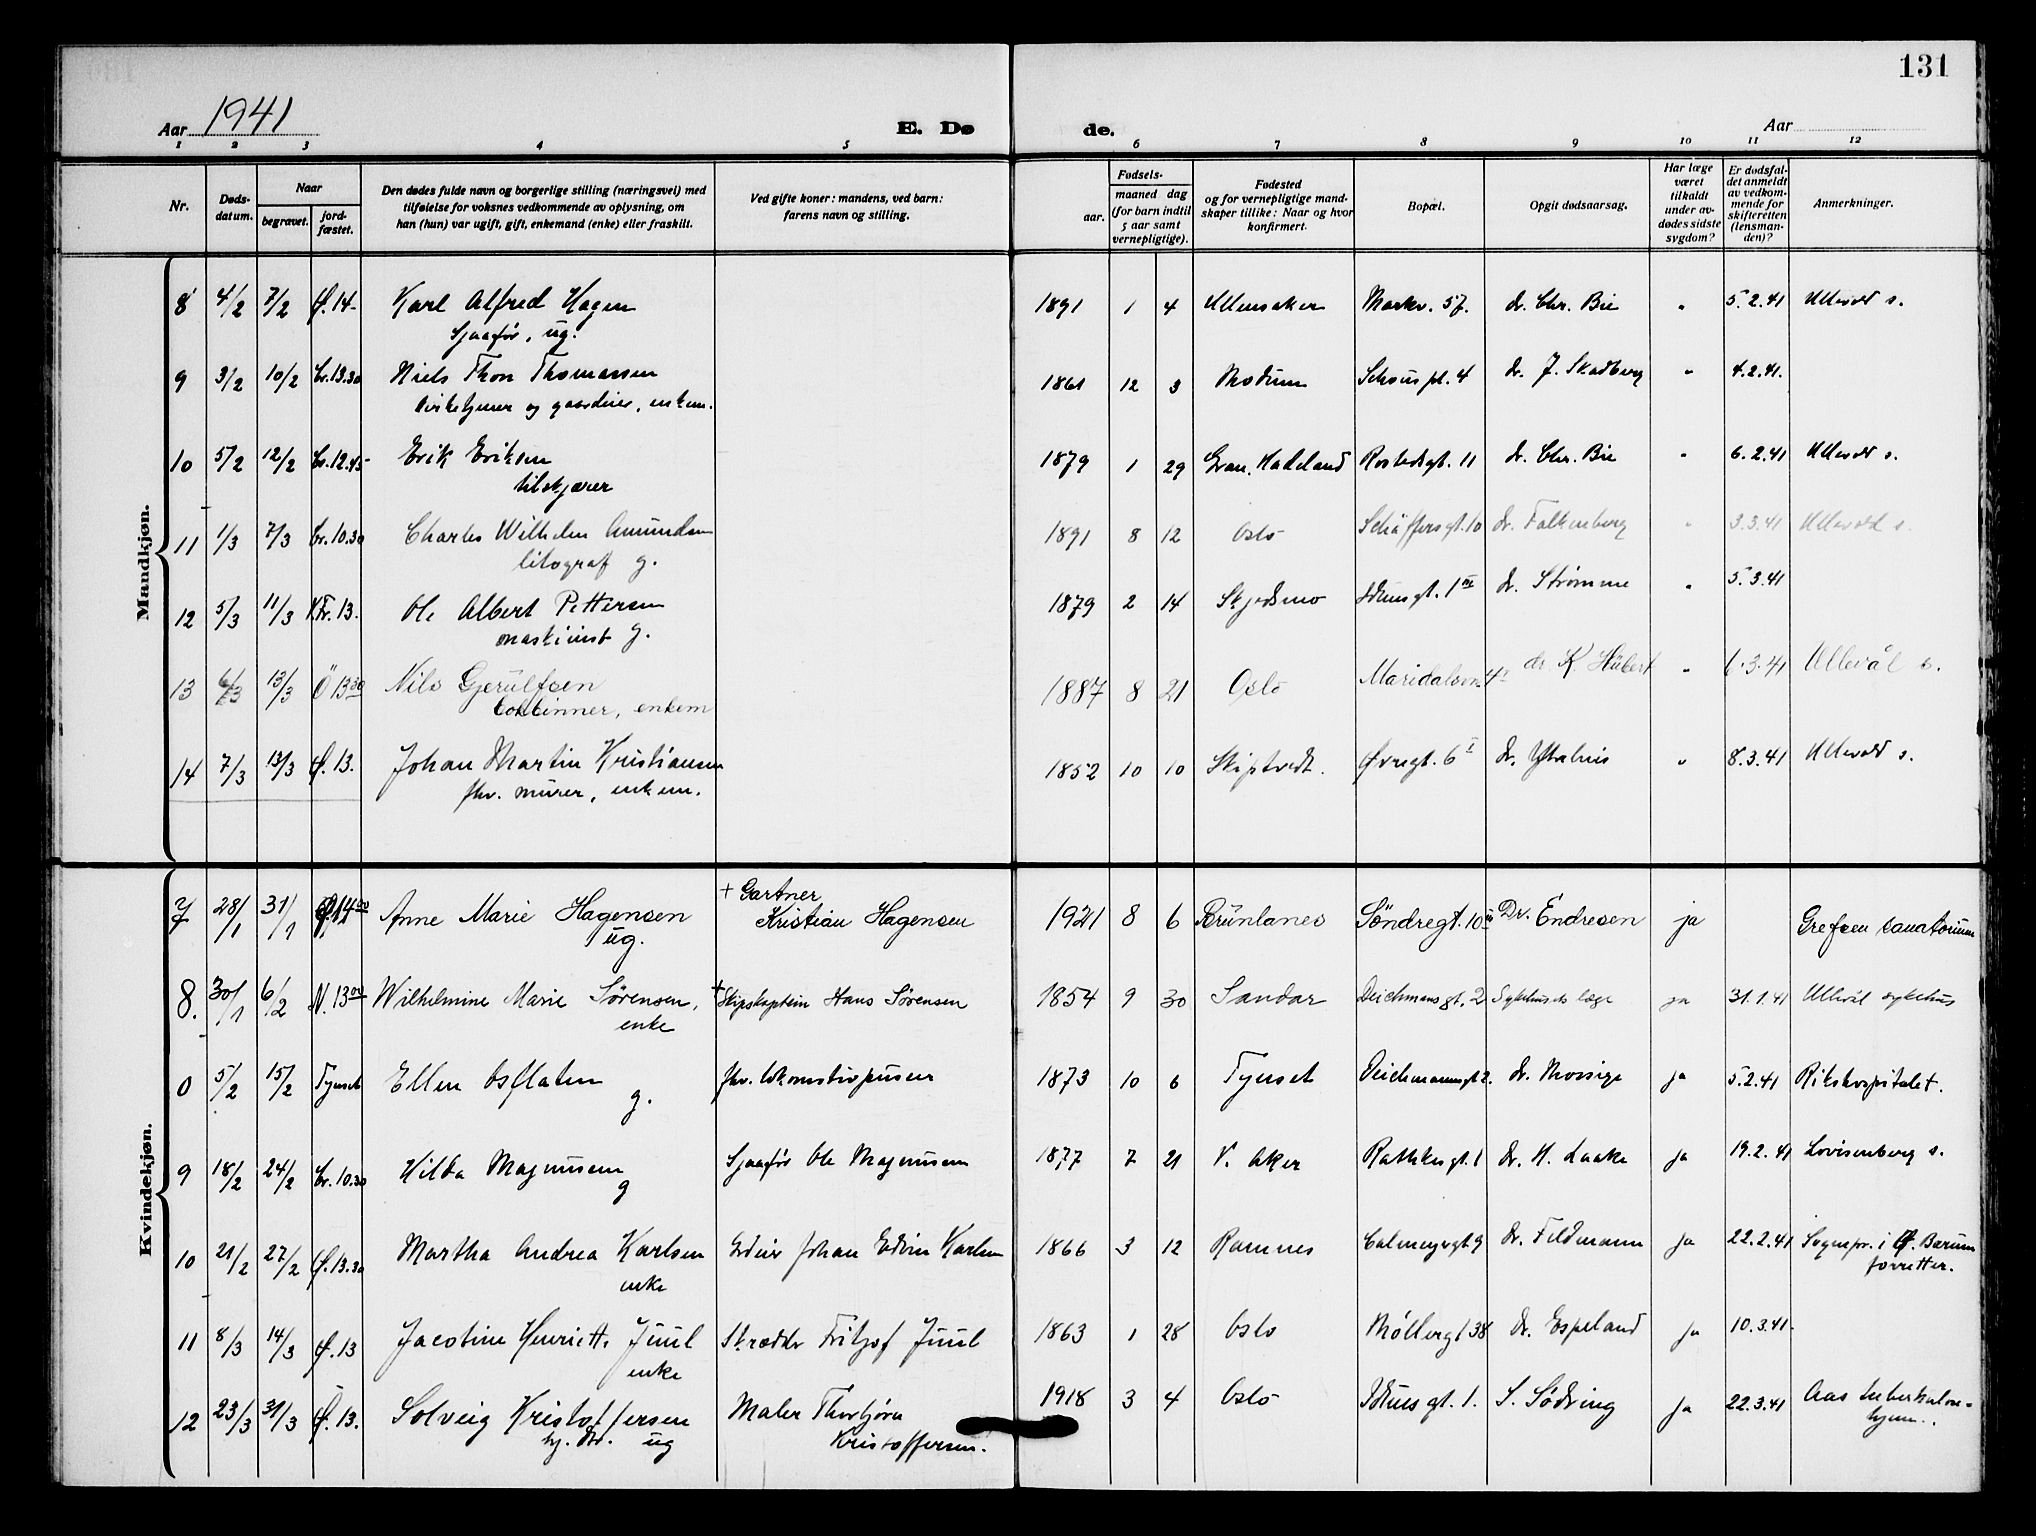 131
Aar 1941
E. Dø de.
Aar
1 2 3 4 5 6 7 8 9 10 11 12
Nr.
Døds-
datum.
Naar
begravet.
jord-
fæstet.
Den dødes fulde navn og borgerlige stilling (næringsvei) med
tilføielse for voksnes vedkommende av oplysning, om
han (hun) var ugift, gift, enkemand (enke) eller fraskilt.
Ved gifte koner: mandens, ved barn:
farens navn og stilling.
Fødsels-
aar.
maaned dag
(for barn indtil
5 aar samt
vernepligtige).
Fødested
og for vernepligtige mand-
skaper tillike: Naar og hvor
konfirmert.
Bopæl.
Opgit dødsaarsag.
Har læge
været
tilkaldt
under av-
dødes sidste
sygdom?
Er dødsfal-
det anmeldt
av vedkom-
mende for
skifteretten
(lensman-
den)?
Anmerkninger.
Mandkjøn.
8 4/2 7/2 Ø. 14- Karl Alfred Hagen 1891 1 4 Ullensaker Markv. 57. dr. Chr. Bie " 5.2.41 Ullevål s.
Sjaafør, ug.
9 3/2 10/2 Cr. 13.30 Niels Thon Thomassen 1861 12 3 Modum Schous pl. 4 dr. J. Skadberg " 4.2.41.
kirketjener og gaardeier, enkem.
10 5/2 12/2 Cr. 12.45 Erik Eriksen 1879 1 29 Gran, Hadeland Rostedsgt. 11 dr. Chr. Bie " 6.2.41 Ullevål s.
tilskjærer
11 1/3 7/3 Cr. 10.30 Charles Wilhelm Amundsen 1891 8 12 Oslo Schäffersgt. 10 dr. Falkenberg " 3.3.41 Ullevål s.
litograf g.
12 5/3 11/3 13. Ole Albert Pettersen 1879 2 14 Skjedsmo Idunsgt. 1 III dr. Strømme " 5.3.41
maskinist g.
13 6/3 13/3 Ö 13 30 Nils Gjerulfsen 1887 8 21 Oslo Maridalsvn. 4 dr K Hübert " 6.3.41 Ullevål s.
enkem
14 7/3 13/3 Ø. 13. Johan Martin Kristiansen 1852 10 10 Skiptvedt. Øvregt. 6 I dr. Ytrehus " 8.3.41 Ullevål s.
fhv. murer, enkem.
Kvindekjøn.
7 28/1 31/1 14 00 Anne Marie Hagensen + Gartner 1921 8 6 Brunlanes Söndregt. 10 III Dr. Endresen ja Grefsen sanatorium
ug. Kristian Hagensen
8. 30/1 6/2 N. 13 00 Wilhelmine Marie Sørensen, + Skipskaptein Hans Sørensen 1854 9 30 Sandar Deichmans gt. 2 Sykehusets læge ja 31.1.41 Ullevål sykehus
enke
0 5/2 15/2 Tynset Ellen Osflaten fhv. lokomotivpusser 1873 10 6 Tynset Deichmannsgt 2. dr. Mossige ja 5.2.41 Rikshospitalet.
g.
9 18/2 24/2 Cr. 10.30 Hilda Magnussen Sjaafør Ole Magnussen 1877 7 21 V. Aker Rathkesgt. 1 dr. H. Laake ja 19.2.41 Lovisenberg s.
g
10 21/2 27/2 Ø. 13.30 Martha Andrea Karlsen Johan Edvin Karlsen 1866 3 12 Ramnes Calmeyersgt 9 dr. Feldmann ja 22.2.41 Sognepr. i Ø. Bærum
enke forretter.
11 8/3 14/3 Ø. 13 Jacobine Henriette Juul Skrædder Fritjof Juul 1863 1 28 Oslo Møllergt 38 dr. Espeland ja 10.3.41.
enke
12 23/3 31/3 Ø. 13. Solveig Kristoffersen Maler Thorbjørn 1918 3 4 Oslo Idunsgt. 1. S. Sødring ja 22.3.41 Aas tuberkulose-
ug Kristoffersen. hjem.